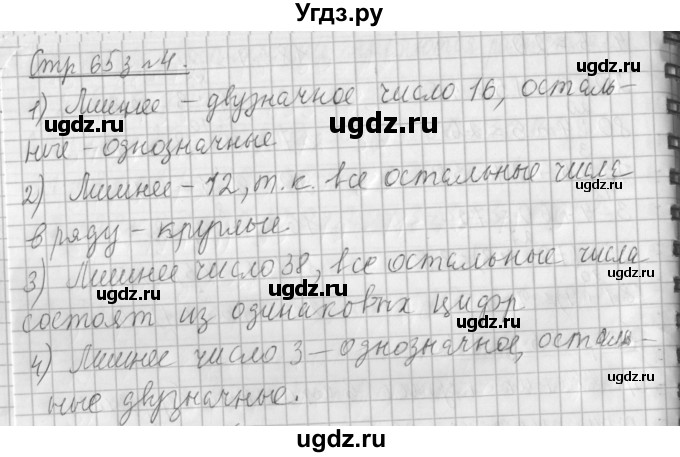 Угдз.ру
Стр 65 з №4.
1) Лишнее – двузначное число 16, осталь-
ные – однозначные
2) Лишнее – 12, т.к. все остальные числа
в ряду – круглые
3) Лишнее число 38, все остальные числа
состоят из одинаковых цифр
4) Лишнее число 3 – однозначное, осталь-
ные двузначные.
ugdz.ru
ugdz.ru
ugdz.ru
ugdz.ru
ugdz.ru
ugdz.ru
ugdz.ru
ugdz.ru
ugdz.ru
ugdz.ru
ugdz.ru
ugdz.ru